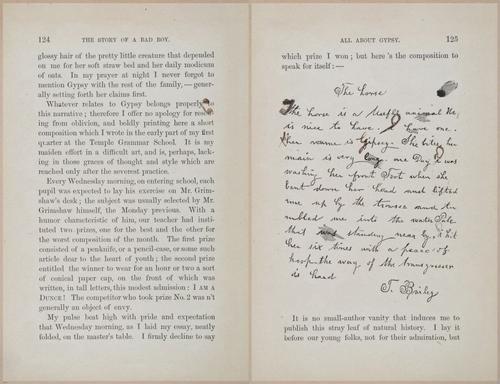 124 THE STORY OF A BAD BOY.
glossy hair of the pretty little creature that depended
on me for her soft straw bed and her daily modicum
of oats. In my prayer at night I never forgot to
mention Gypsy with the rest of the family, — gener-
ally setting forth her claims first.
Whatever relates to Gypsy belongs properly to
this narrative; therefore I offer no apology for rescu-
ing from oblivion, and boldly printing here a short
composition which I wrote in the early part of my first
quarter at the Temple Grammar School. It is my
maiden effort in a difficult art, and is, perhaps, lack-
ing in those graces of thought and style which are
reached only after the severest practice.
Every Wednesday morning, on entering school, each
pupil was expected to lay his exercise on Mr. Grim-
shaw's desk; the subject was usually selected by Mr.
Grimshaw himself, the Monday previous. With a
humor characteristic of him, our teacher had insti-
tuted two prizes, one for the best and the other for
the worst composition of the month. The first prize
consisted of a penknife, or a pencil-case, or some such
article dear to the heart of youth; the second prize
entitled the winner to wear for an hour or two a sort
of conical paper cap, on the front of which was
written, in tall letters, this modest admission: I AM A
DUNCE! The competitor who took prize No. 2 was n't
generally an object of envy.
My pulse beat high with pride and expectation
that Wednesday morning, as I laid my essay, neatly
folded, on the master's table. I firmly decline to say
ALL ABOUT GYPSY. 125
which prize I won; but here 's the composition to
speak for itself: —
The horse
The horse is a usefle animal He
is nice to have. I have one.
her name is Gipsey. She bites her
main is very long one Day i was
washing her front Foot when she
bent down her head and lifted
me up by the trouses and tu-
mbled me into the water Pale
that was standing near by, i hit
her six times with a peace of
hoop the way of the transgresser
is hard
T. Bailey
It is no small-author vanity that induces me to
publish this stray leaf of natural history. I lay it
before our young folks, not for their admiration, but